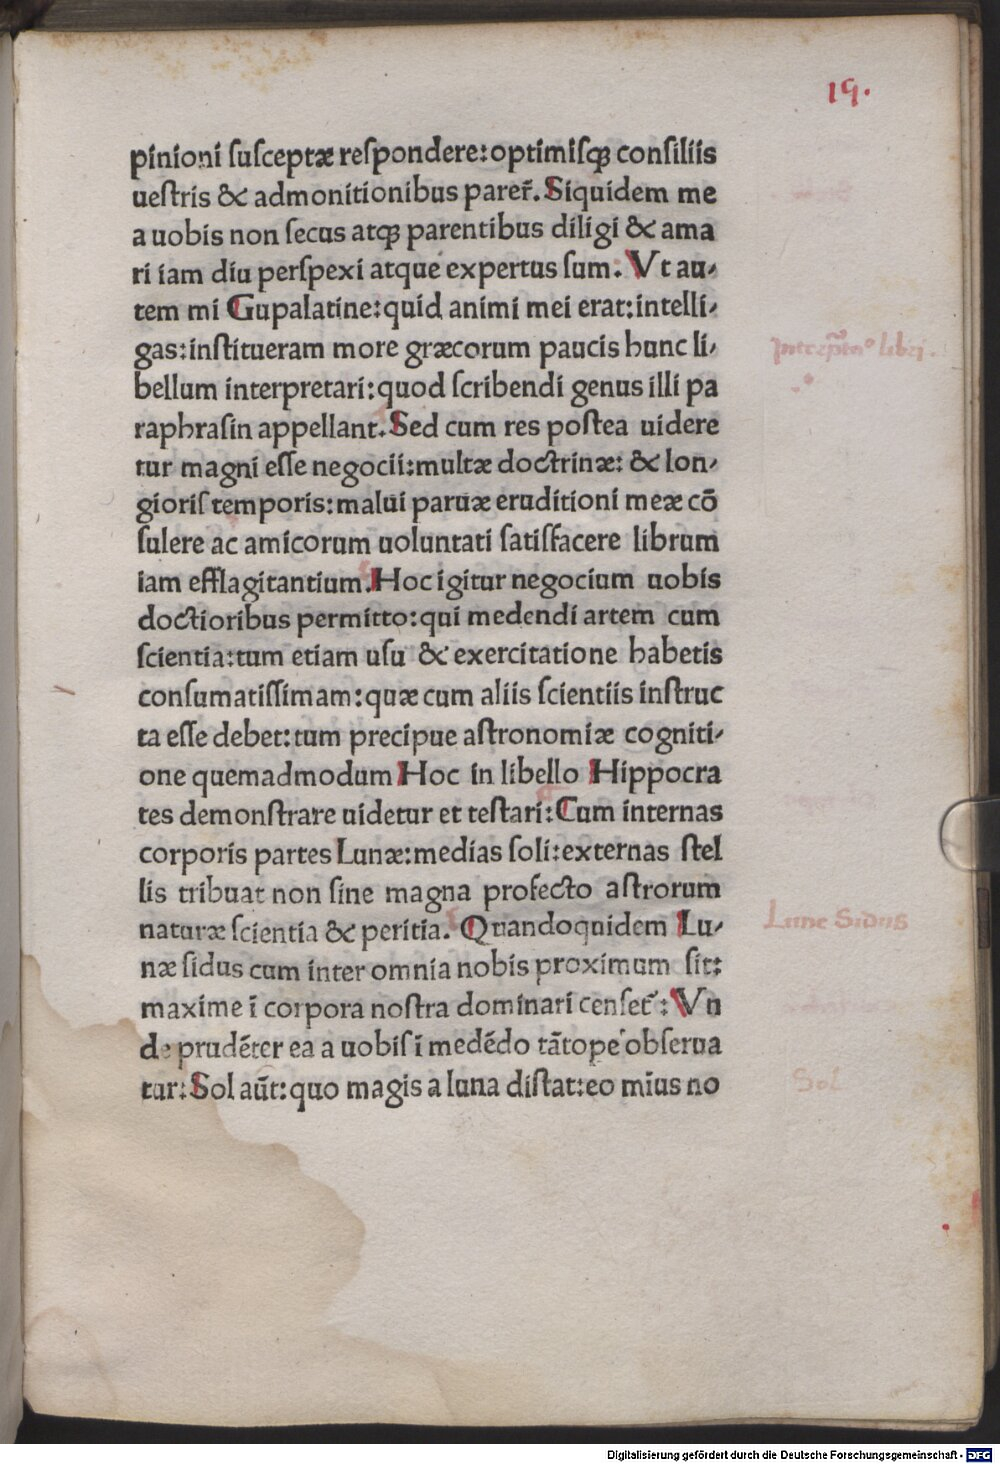 19.
pinioni ſuſceptæ reſpondere:optimiſqꝫ conſiliis
ueſtris & admonitionibus parer᷑.Siquidem me
a uobis non ſecus atqꝫ parentibus diligi & ama
ri iam diu perſpexi atque expertus ſum. Vt au-
tem mi Gupalatine:quid animi mei erat:intelli-
gas:inſtitueram more græcorum paucis hunc li-
bellum interpretari:quod ſcribendi genus illi pa
raphraſin appellant.Sed cum res poſtea uidere
tur magni eſſe negocii:multæ doctrinæ: & lon-
gioriſ temporis:malui paruæ eruditioni meæ cō
ſulere ac amicorum uoluntati ſatiſfacere librum
iam efflagitantium.Hoc igitur negocium uobis
doctioribus permitto:qui medendi artem cum
ſcientia:tum etiam uſu & exercitatione habetis
conſumatiſſimam:quæ cum aliis ſcientiis inſtruc
ta eſſe debet:tum precipue aſtronomiæ cogniti-
one quemadmodum Hoc in libello Hippocra
tes demonſtrare uidetur et teſtari:Cum internas
corporis partes Lunæ:medias ſoli:externas ſtel
lis tribuat non ſine magna profecto aſtrorum
naturæ ſcientia & peritia. Quandoquidem Lu-
næ ſidus cum inter omnia nobis proximum ſit:
maxime ī corpora noſtra dominari cenſet᷑: Vn
de prudēter ea a uobiſ ī medēdo tātope obſerua
tur:Sol aūt:quo magis a luna diſtat:eo mīus no
Lune Sidus
Sol
Digitalisierung gefördert durch die Deutsche Forschungsgemeinschaft - DFG